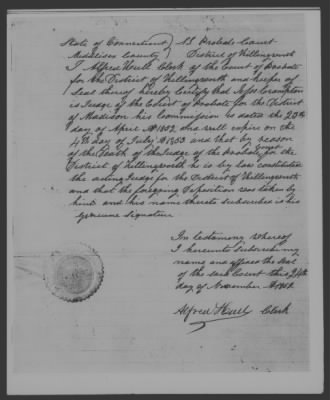 State of Connecticut } SS Probate Court
Middlesex County } District of Killingworth
I Alfred Hull Clerk of the Court of Probate
for the District of Killingworth and keeper of
Seal thereof hereby Certify that Crampton
is Judge of the Court of Probate for the District
of Madison his Commission is dated the
day of April A 1852 and will expire on the
4th day of July A 1853 and that by reason
of the Death of the Judge of the Probate Court for the
District of Killingworth he is by law constituted
the acting Judge for the District of Killingworth
and that the foregoing Deposition was taken by
him and his name thereto subscribed is his
Genuine Signature
In testimony Whereof
I hereunto Subscribe my
name and affixed the Seal
of the said Court this 24th
day of November A 1852
Alfred Hull Clerk